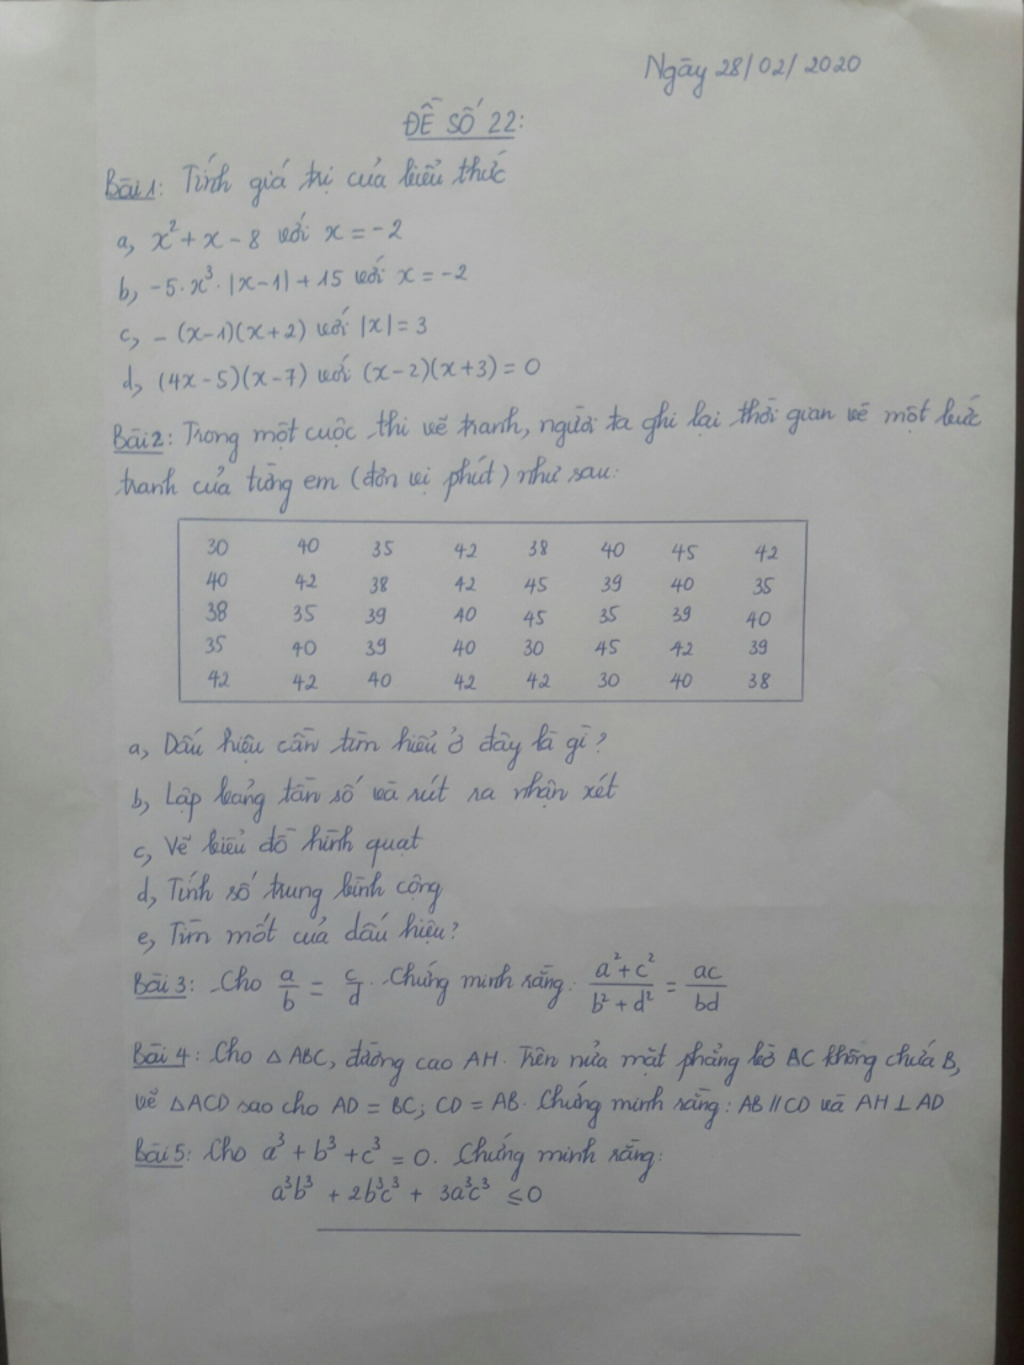 Ngày 28/02/2020
ĐỀ SỐ 22:
Bài 1: Tính giá trị của biểu thức
a, x² + x - 8 với x = -2
b, -5·x³·|x-1| + 15 với x = -2
c, -(x-1)(x+2) với |x| = 3
d, (4x-5)(x-7) với (x-2)(x+3) = 0
Bài 2: Trong một cuộc thi vẽ tranh, người ta ghi lại thời gian vẽ một bức
tranh của từng em (đơn vị phút) như sau:
30 40 35 42 38 40 45 42
40 42 38 42 45 39 40 35
38 35 39 40 45 35 39 40
35 40 39 40 30 45 42 39
42 42 40 42 42 30 40 38
a, Dấu hiệu cần tìm hiểu ở đây là gì?
b, Lập bảng tần số và rút ra nhận xét
c, Vẽ biểu đồ hình quạt
d, Tính số trung bình cộng
e, Tìm mốt của dấu hiệu?
Bài 3: Cho a/b = c/d. Chứng minh rằng: (a²+c²)/(b²+d²) = ac/bd
Bài 4: Cho △ABC, đường cao AH. Trên nửa mặt phẳng bờ AC không chứa B,
vẽ △ACD sao cho AD = BC; CD = AB. Chứng minh rằng: AB // CD và AH ⊥ AD
Bài 5: Cho a³ + b³ + c³ = 0. Chứng minh rằng:
a³b³ + 2b³c³ + 3a³c³ ≤ 0